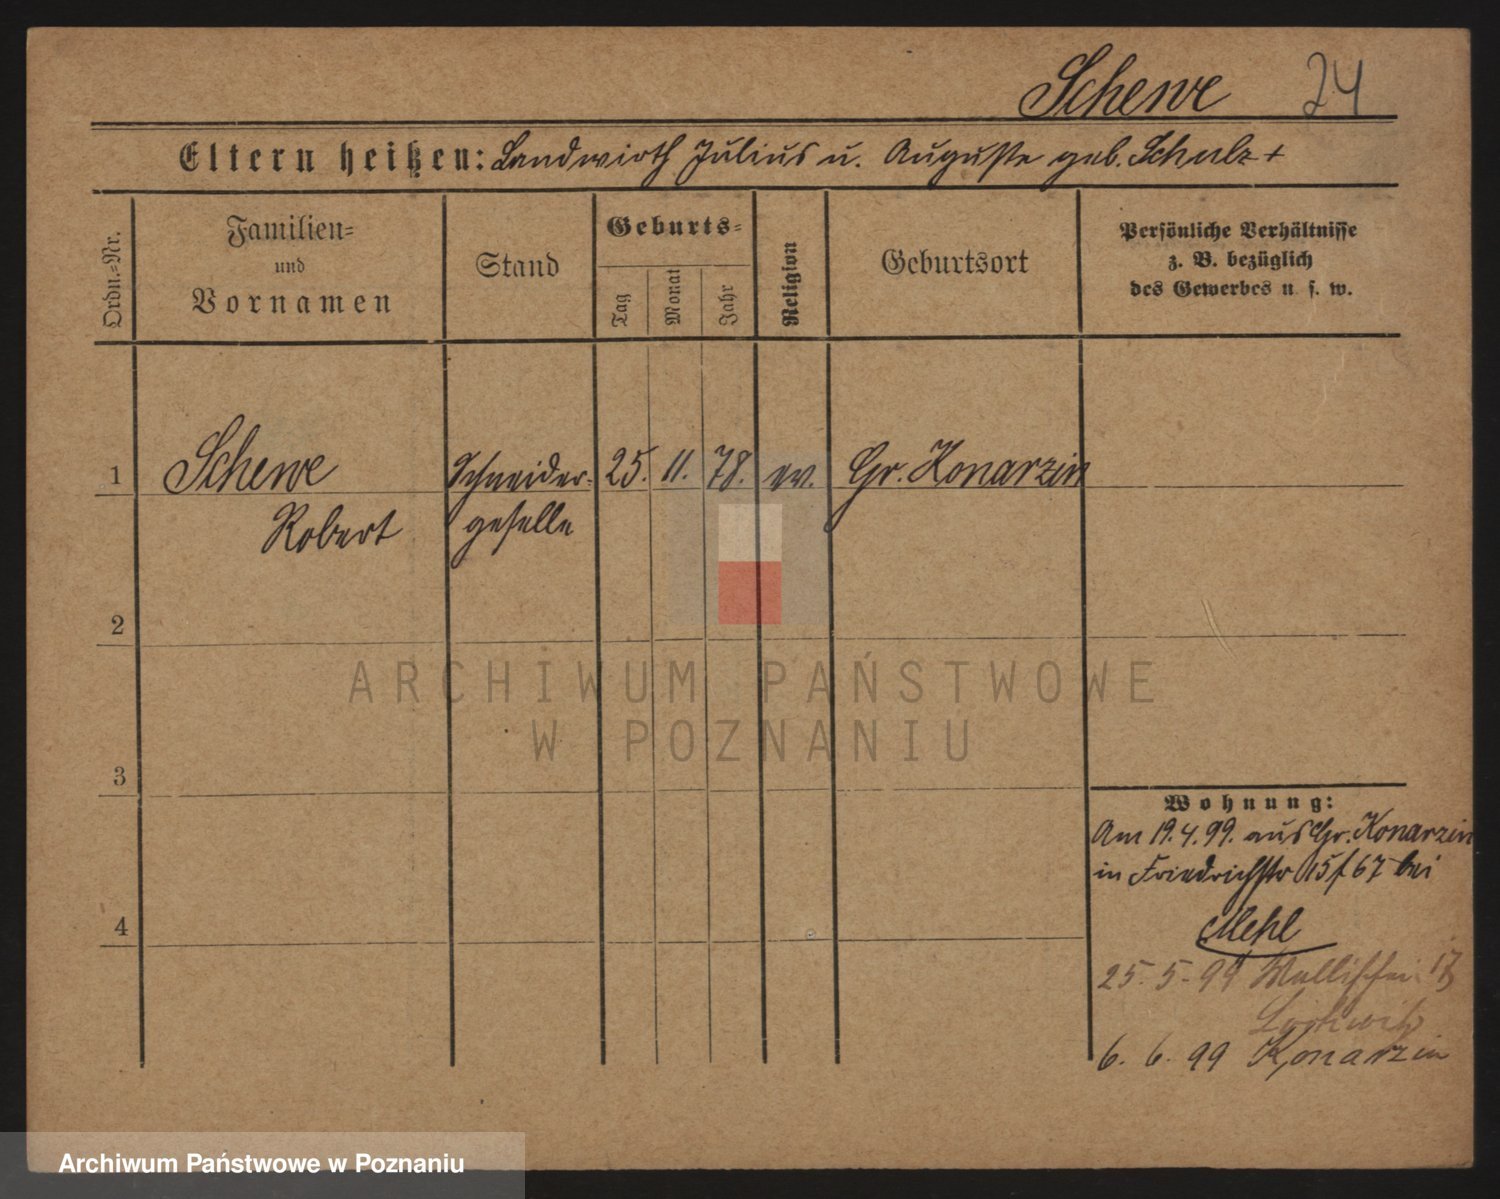 Schewe 24
Eltern heißen: Landwirth Julius u. Auguste geb. Schulz +
Ordn.-Nr.
Familien-
und
Vornamen
Stand
Geburts-
Tag
Monat
Jahr
Religion
Geburtsort
Persönliche Verhältnisse
z. B. bezüglich
des Gewerbes u. s. w.
1 Schewe Schneider- 25. 11. 78. ev. Gr. Konarzin
Robert geselle
2
3
4
Wohnung:
Am 19.4.99. aus Gr. Konarzin
in Friedrichstr 15 67 bei
Mehl
25.5.99 Wallischei 17
6. 6. 99 Konarzin
ARCHIWUM PAŃSTWOWE
W POZNANIU
Archiwum Państwowe w Poznaniu